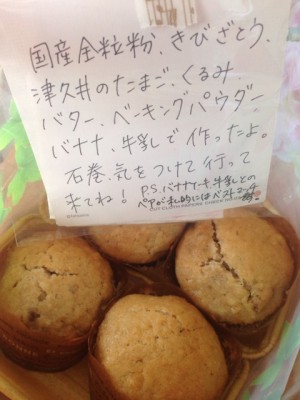 国産全粒粉、きびざとう、
津久井のたまご、くるみ
バター、ベーキングパウダー
バナナ、牛乳で作ったよ。
石巻、気をつけて行って
来てね！ P.S.バナナケーキ、牛乳との
ペアが私的にはベストマッチ